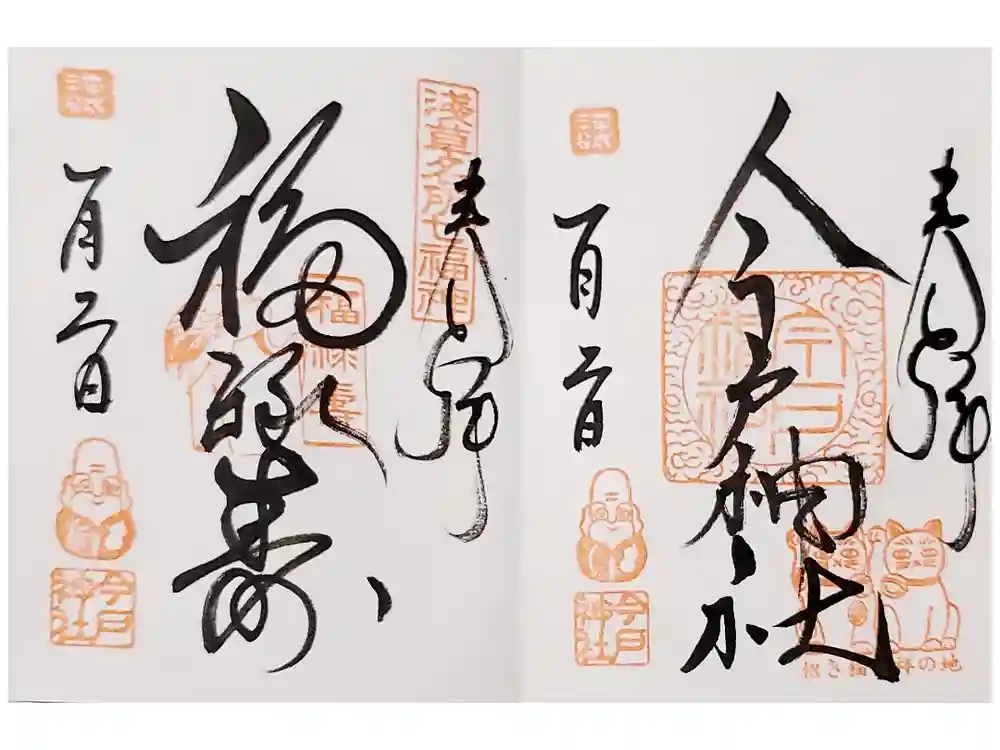 奉拝
今戸神社
招き猫発祥の地
一月二日
今戸神社
奉拝
淺草名所七福神
福禄寿
福禄壽
一月二日
今戸神社